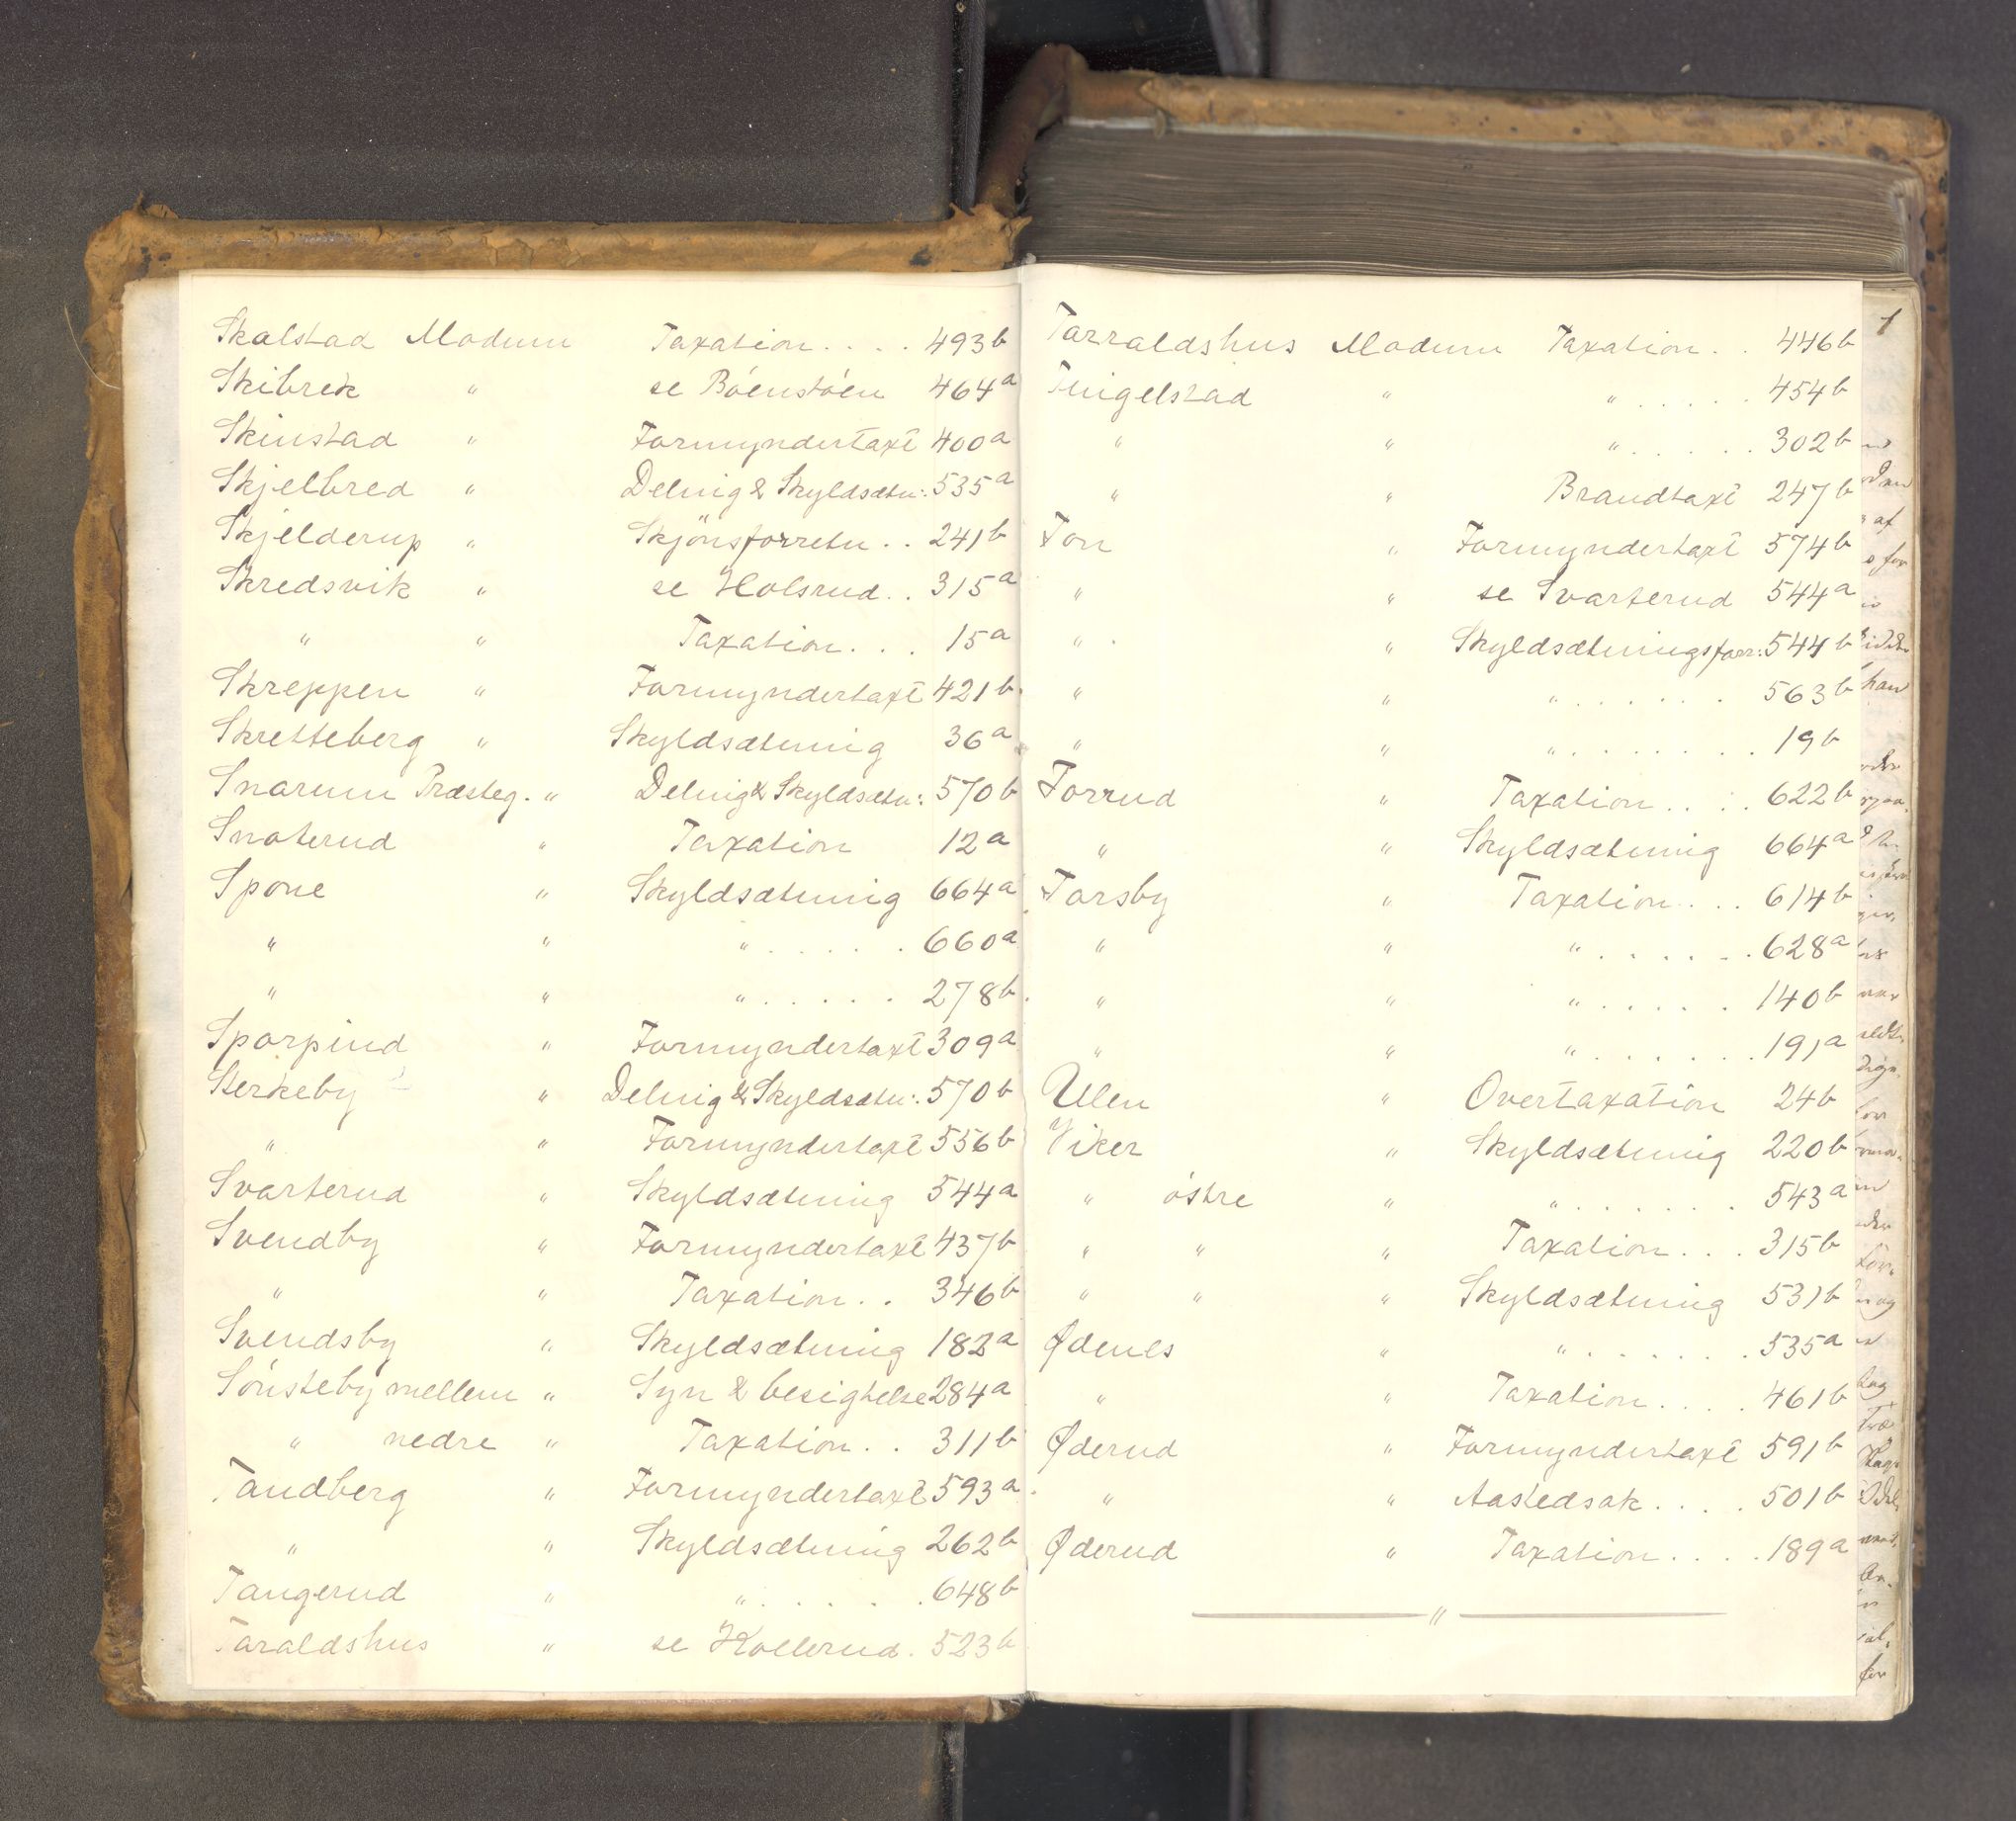 Skalstad Modum Taxation . . . . 493b
Skibrek " se Böenstöen 464a
Skinstad " Formyndertaxt 400a
Skjelbred " Delnig & Skyldsætn: 535a
Skjelderup " Skjönsforretn . . 241b
Skredsvik " se Holsrud . . 315a
" " Taxation . . . 15a
Skreppen " Formyndertaxt 421b
Skretteberg " Skyldsætnnig 36a
Snarum Præsteg. " Delnig & Skyldsætn: 570b
Snoterud " Taxation 12a
Spone " Skyldsætnnig 664a
" " " . . . . . 660a
" " " . . . . . . 278b
Sporpind " Formyndertaxt 309a
Sterkeby " Delnig & Skyldsætn: 570b
" " Formyndertaxt 556b
Svarterud " Skyldsætnnig 544a
Svendby " Formyndertaxt 437b
" " Taxation . . 346b
Svendsby " Skyldsætnnig 182a
Sönsteby mellem " Syn & besigtelse 284a
" nedre " Taxation . . 311b
Tandberg " Formyndertaxt 593a
" " Skyldsætnnig 262b
Tangerud " " . . . . . . 648b
Taraldshus " se Kollerud . 523b
Tarraldshus Modum Taxation . . 446b
Tingelstad " " . . . . . 454b
" " " . . . . . . 302b
" " Brandtaxt 247b
Ton " Formyndertaxt 574b
" " se Svarterud 544a
" . " Skyldsætningsforr: 544b
" " " . . . . . . 563b
" " " . . . . . . . 19b
Torrud " Taxation . . . . 622b
" " Skyldsætnnig 664a
Torsby " Taxation . . . 614b
" " " . . . . . . 628a
" " " . . . . . . 140b
" " " . . . . . . . 191a
Ulen " Overtaxation 24b
Viker " Skyldsætnnig 220b
" östre " " . . . . . . . 543a
" " " Taxation . . . 315b
" " " Skyldsætnnig 531b
Ødenes " " . . . . . . . 535a
" " Taxation . . . . 461b
Øderud " Formyndertaxt 591b
" " Aastedsak . . . . 501b
Øderud " Taxation . . . . 189a
"
1